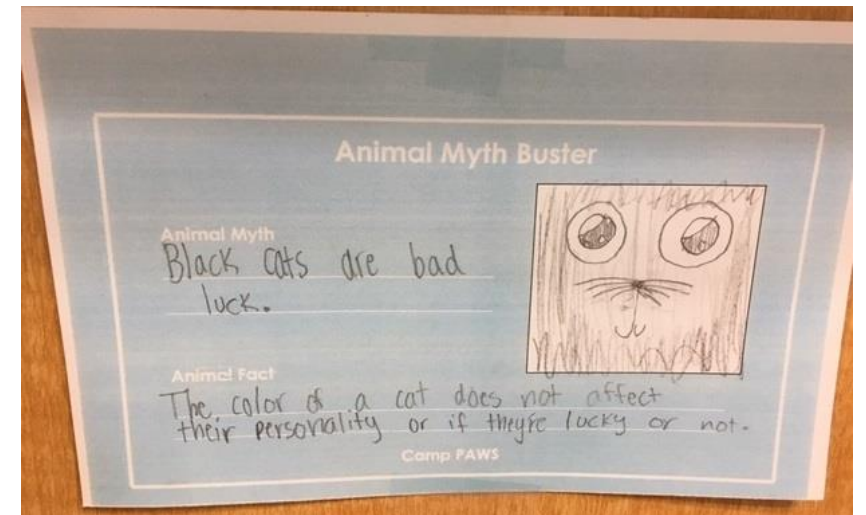 Animal Myth Buster
Animal Myth
Black cats are bad
luck.
Animal Fact
The color of a cat does not affect
their personality or if they're lucky or not.
Camp PAWS